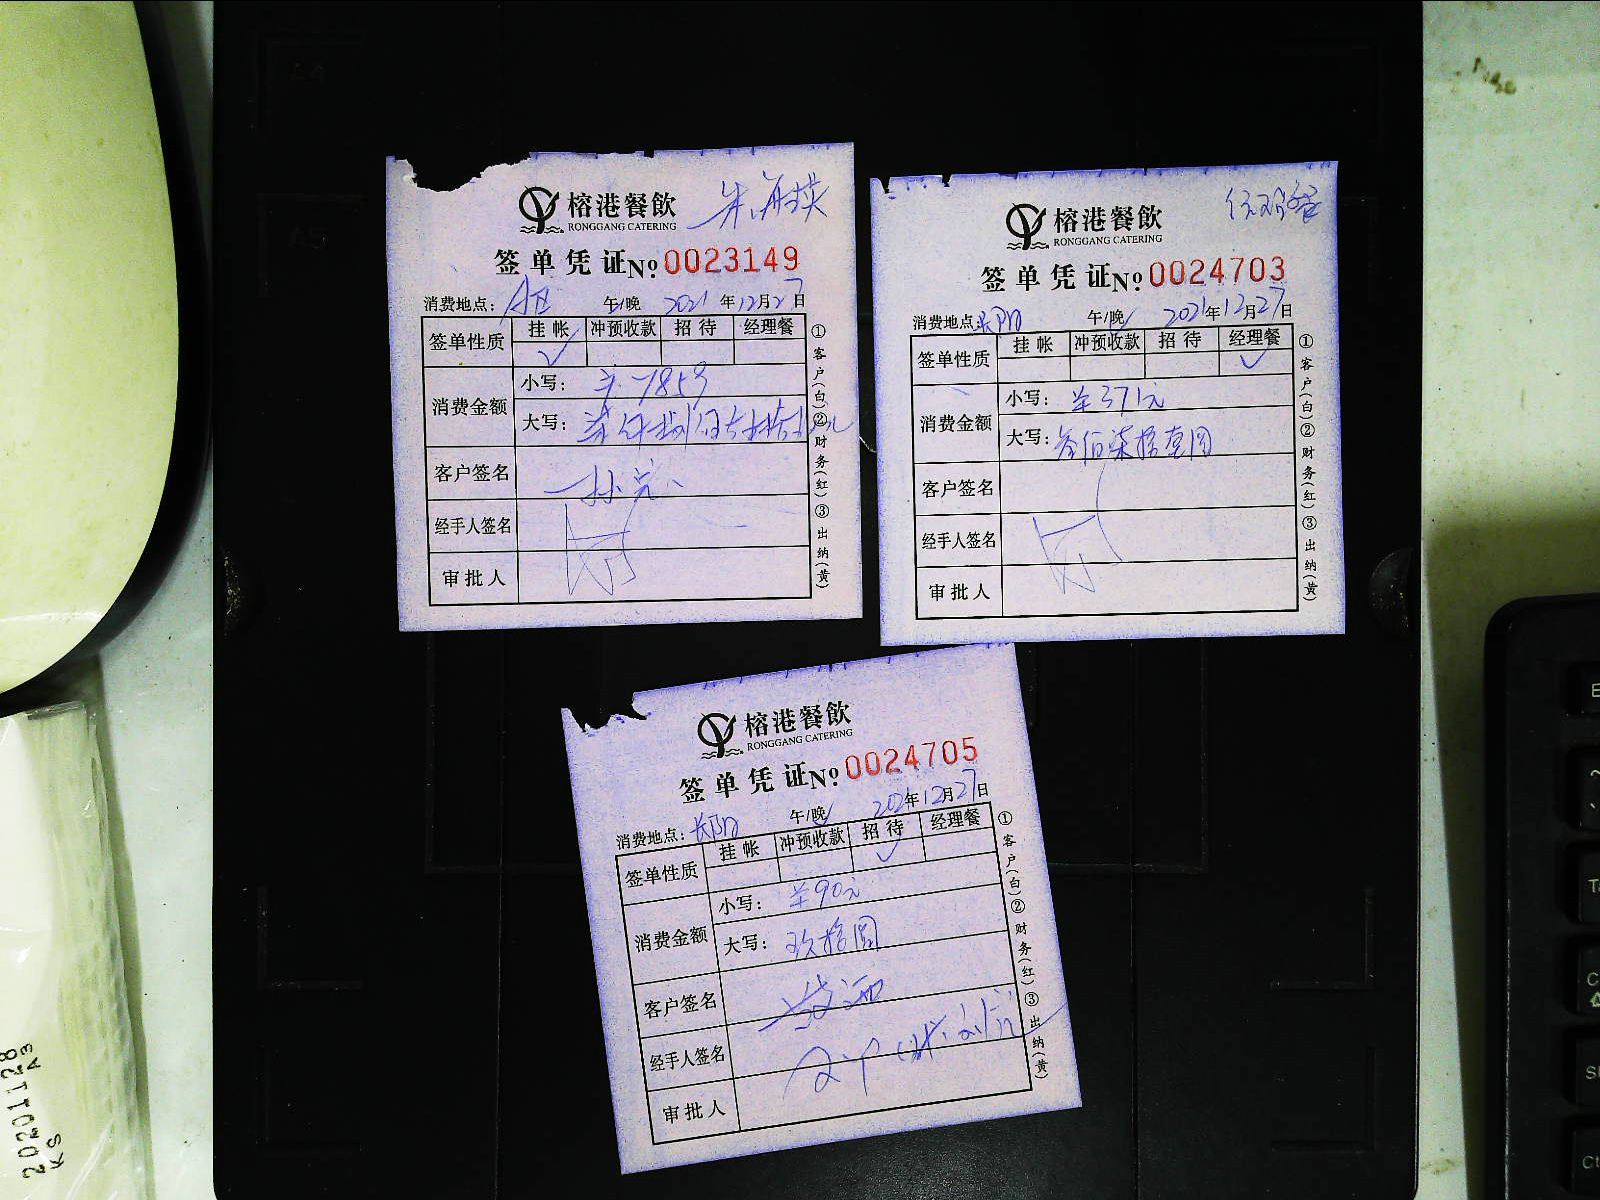 榕港餐飲
RONGGANG CATERING
签单凭证 № 0023149
消费地点： 午/晚 2021年12月27日
签单性质 挂帐 冲预收款 招待 经理餐
✓
消费金额 小写： 7859
大写：
客户签名
经手人签名
审批人
①客户(白)②财务(红)③出纳(黄)
榕港餐飲
RONGGANG CATERING
签单凭证 № 0024703
消费地点： 午/晚 2021年12月27日
签单性质 挂帐 冲预收款 招待 经理餐
✓
消费金额 小写： ¥371元
大写： 叁佰柒拾壹圆
客户签名
经手人签名
审批人
①客户(白)②财务(红)③出纳(黄)
榕港餐飲
RONGGANG CATERING
签单凭证 № 0024705
消费地点： 午/晚 2021年12月27日
签单性质 挂帐 冲预收款 招待 经理餐
✓
消费金额 小写： ¥90元
大写： 玖拾圆
客户签名
经手人签名
审批人
①客户(白)②财务(红)③出纳(黄)
20201128
A3
KS